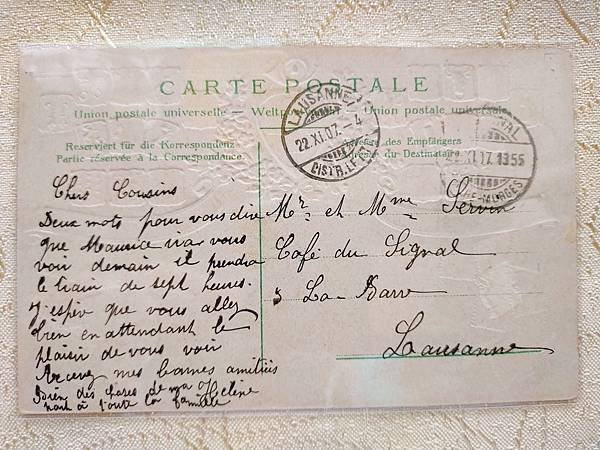 CARTE POSTALE
Union postale universelle — Weltpostverein — Union postale universale
Reserviert für die Korrespondenz
Partie réservée à la Correspondance
des Empfängers
du Destinataire
LAUSANNE
22.XI.07. 4
DISTR. LET
GNAL
XI.17 1355
MORGES
Chers Cousins
Deux mots pour vous dire
que Maurice ira vous
voir demain il prendra
le train de sept heures.
J'espère que vous allez
bien en attendant le
plaisir de vous voir
Recevez mes bonnes amitiés
Hélène
Bien des choses de ma
à toute la famille
Mr et Mme Servin
Café du Signal
La Barre
Lausanne